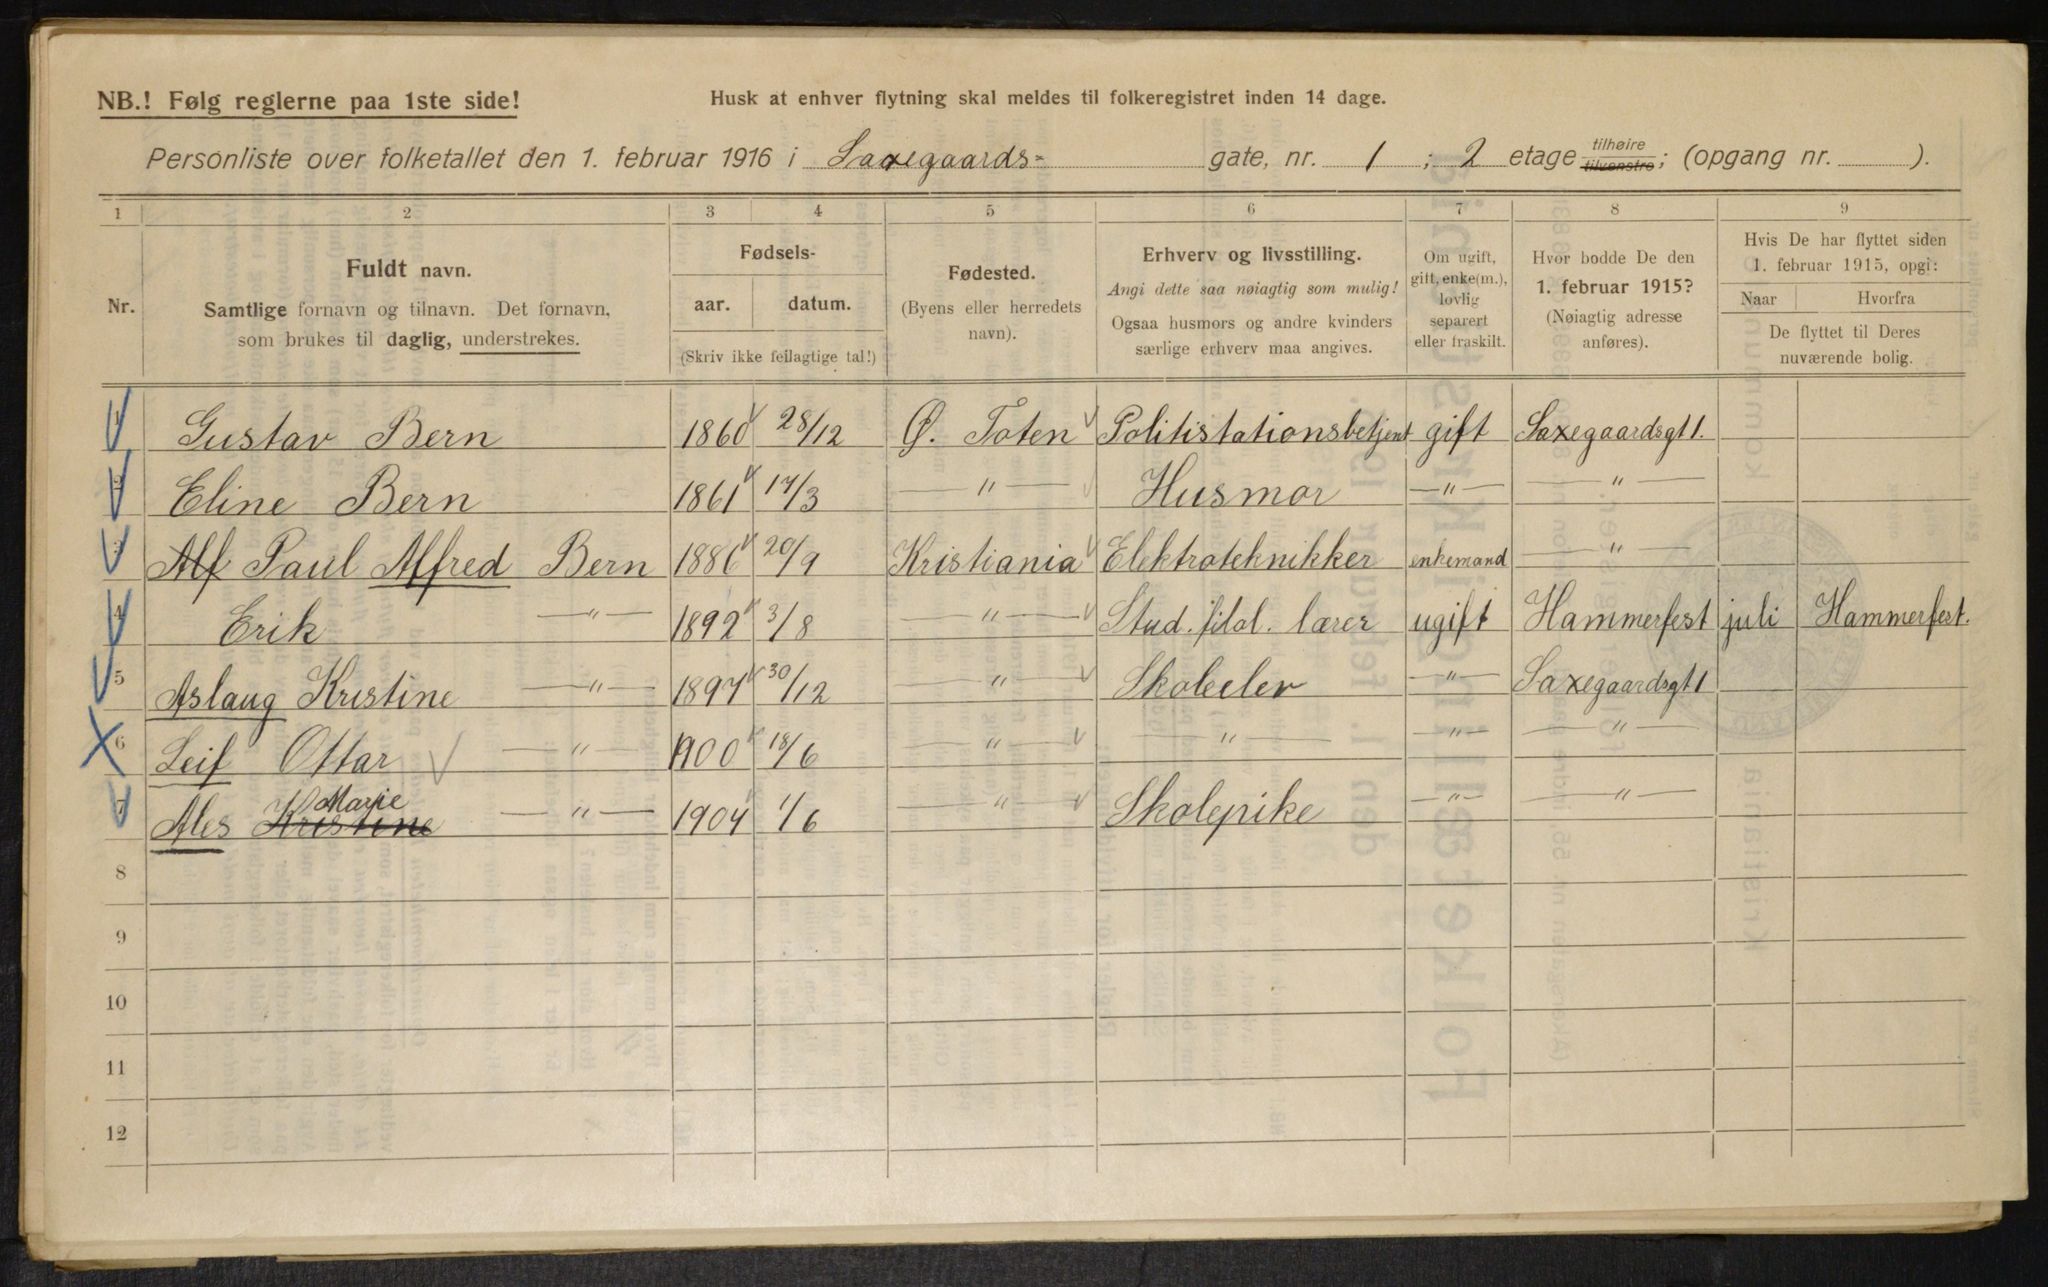 NB.! Følg reglerne paa 1ste side!
Husk at enhver flytning skal meldes til folkeregistret inden 14 dage.
Personliste over folketallet den 1. februar 1916 i Saxegaards- gate, nr. 1 ; 2 etage tilhøire tilvenstre; (opgang nr. ).
1 2 3 4 5 6 7 8 9
Nr.
Fuldt navn.
Samtlige fornavn og tilnavn. Det fornavn,
som brukes til daglig, understrekes.
Fødsels-
aar. datum.
(Skriv ikke feilagtige tal!)
Fødested.
(Byens eller herredets
navn).
Erhverv og livsstilling.
Angi dette saa nøiagtig som mulig!
Ogsaa husmors og andre kvinders
særlige erhverv maa angives.
Om ugift,
gift, enke(m.),
lovlig
separert
eller fraskilt.
Hvor bodde De den
1. februar 1915?
(Nøiagtig adresse
anføres).
Hvis De har flyttet siden
1. februar 1915, opgi:
Naar Hvorfra
De flyttet til Deres
nuværende bolig.
1 Gustav Bern 1860 28/12 Ø. Toten Politistationsbetjent gift Saxegaardsgt 1.
2 Eline Bern 1861 17/3 — " — Husmor — " — — " —
3 Alf Paul Alfred Bern 1886 20/9 Kristiania Elektroteknikker enkemand — " —
4 Erik — " — 1892 3/8 — " — Stud. filol. lærer ugift Hammerfest juli Hammerfest.
5 Aslaug Kristine — " — 1897 30/12 — " — Skoleelev — " — Saxegaardsgt 1
6 Leif Ottar — " — 1900 18/6 — " — — " — — " — — " —
Marie
7 Ales Kristine — " — 1904 1/6 — " — Skolepike — " — — " —
8
9
10
11
12